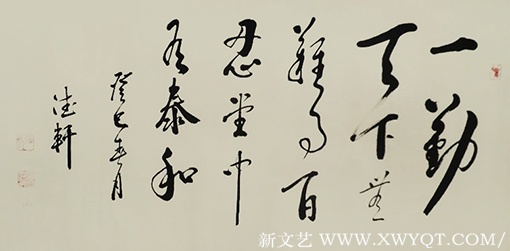 一勤
天下無
難事百
忍堂中
有泰和
癸巳春月
軒
新文艺 WWW.XWYQT.COM